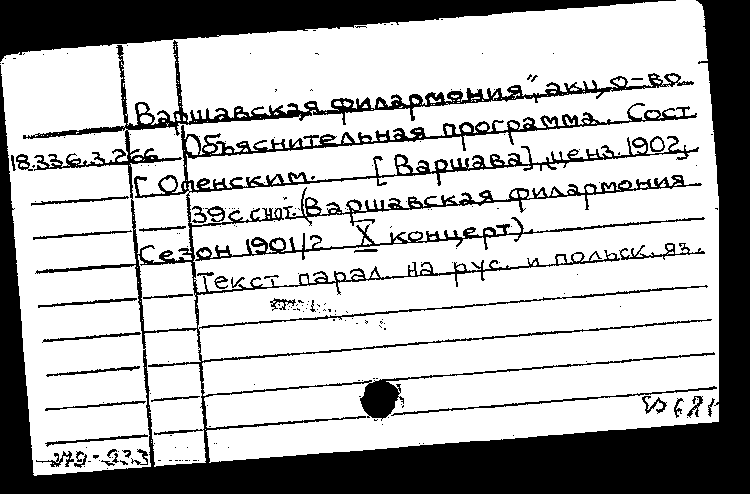 Варшавская филармония", акц. о-во
18.336.3.266 Объяснительная программа. Сост.
Г. Опенским. [Варшава], ценз. 1902,
39 с. с нот. (Варшавская филармония
Сезон 1901/2 X концерт).
Текст парал. на рус. и польск. яз.
279-933